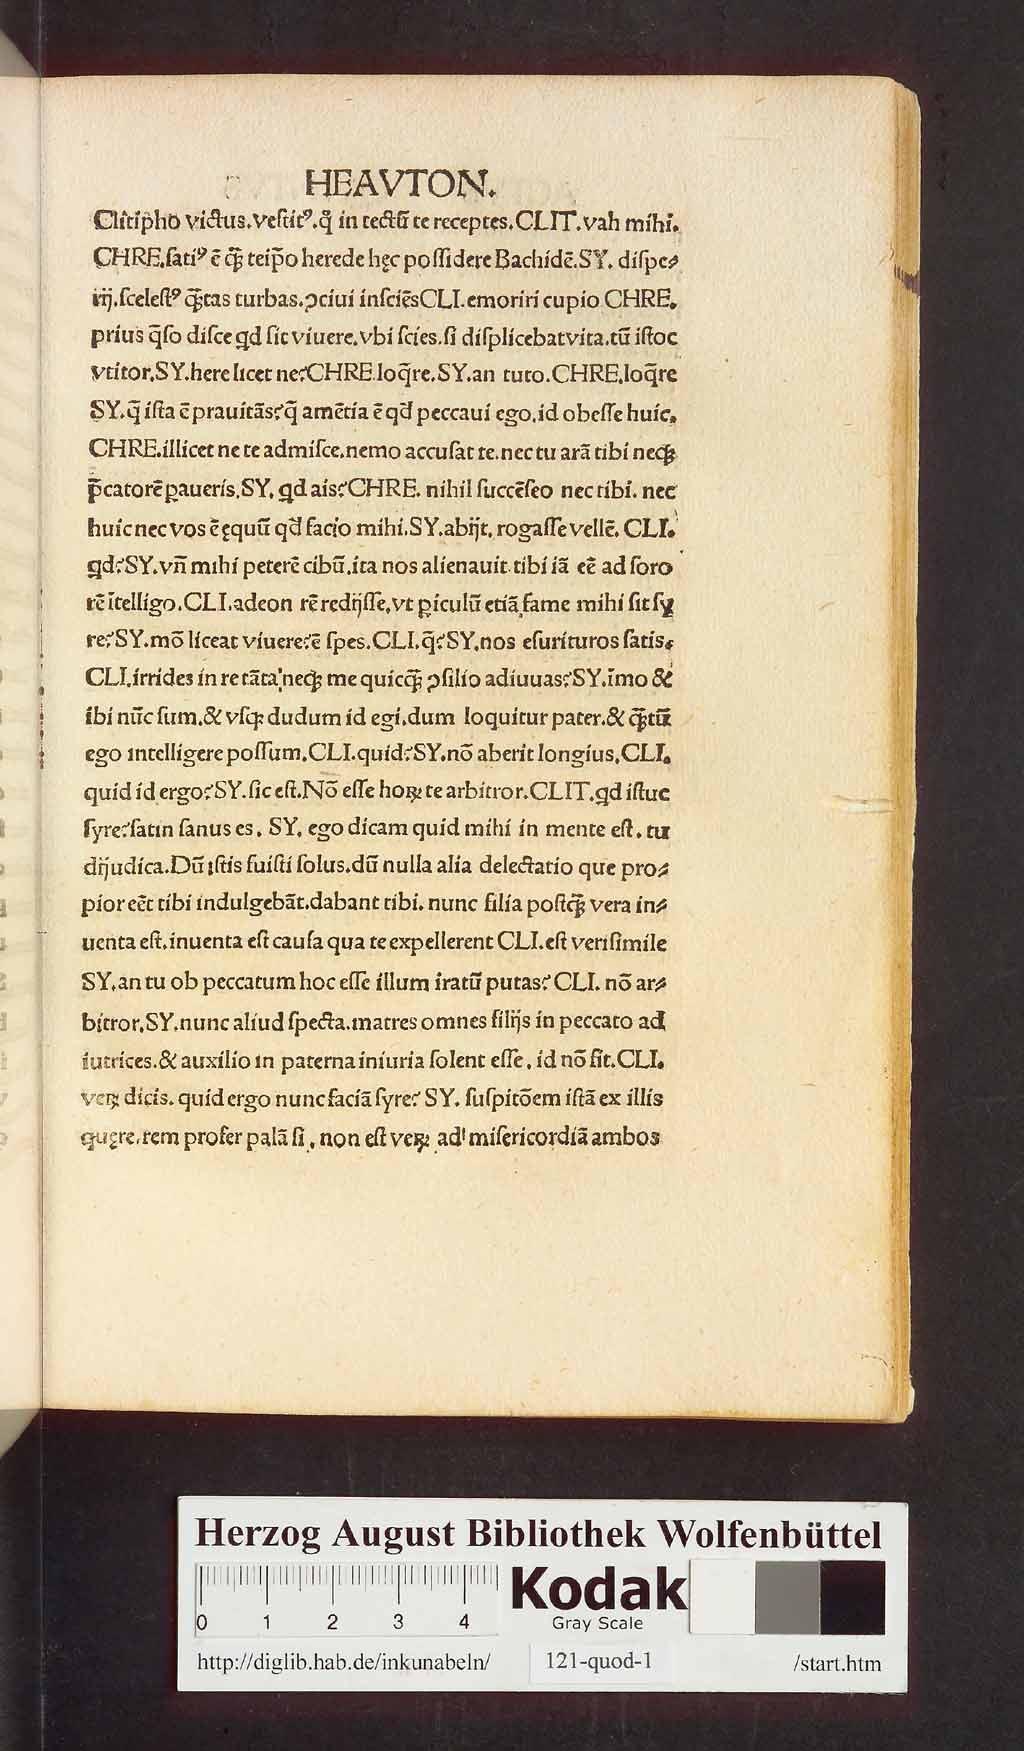 HEAVTON.
Clitip̄ho victus.veſtitꝰ.q̄ in tectū te receptes.CLIT.vah mihi.
CHRE.ſatiꝰ ē q̄ꝫ teip̄o herede hęc poſſidere Bachidē.SY. diſpe⸗
rij.ſceleſtꝰ q̄ꝫtas turbas.ꝯciui inſciēsCLI.emoriri cupio CHRE.
prius q̄ſo diſce qd ſit viuere.vbi ſcies.ſi diſplicebatvita.tū iſtoc
vtitor.SY.here licet ne?CHRE.loq̄re.SY.an tuto.CHRE.loq̄re
SY.q̄ iſta ē prauitās?q̄ amētia ē qd̄ peccaui ego.id obeſſe huic.
CHRE.illicet ne te admiſce.nemo accuſat te.nec tu arā tibi neqꝫ
p̄catorē ꝑaueris.SY. qd ais?CHRE. nihil ſuccēſeo nec tibi. nec
huic nec vos ē ęquū qd̄ facio mihi.SY.abijt. rogaſſe vellē. CLI.
qd?SY.vn̄ mihi peterē cibū.ita nos alienauit.tibi iā eē ad ſoro
rē ītelligo.CLI.adeon rē redijſſe.vt ꝑiculū etiā fame mihi ſit ſy
re?SY.mō liceat viuere?ē ſpes.CLI.q̄?SY.nos eſurituros ſatis.
CLI.irrides in re tāta neqꝫ me quicq̄ꝫ ꝯſilio adiuuas?SY.īmo &
ibi nūc ſum.& vſqꝫ dudum id egi.dum loquitur pater.& q̄ꝫtū
ego intelligere poſſum.CLI.quid?SY.nō aberit longius.CLI.
quid id ergo?SY.ſic eſt.Nō eſſe hoꝝ te arbitror.CLIT.qd iſtuc
ſyre?ſatin ſanus es. SY. ego dicam quid mihi in mente eſt. tu
dijudica.Dū iſtis fuiſti ſolus.dū nulla alia delectatio que pro⸗
pior eēt tibi indulgebāt.dabant tibi. nunc filia poſtq̄ꝫ vera in⸗
uenta eſt.inuenta eſt cauſa qua te expellerent CLI.eſt veriſimile
SY.an tu ob peccatum hoc eſſe illum iratū putas? CLI. nō ar⸗
bitror.SY.nunc aliud ſpecta.matres omnes filijs in peccato ad
iutrices.& auxilio in paterna iniuria ſolent eſſe. id nō fit.CLI.
veꝝ dicis. quid ergo nunc faciā ſyre? SY. ſuſpitōem iſtā ex illis
quęre.rem profer palā ſi. non eſt veꝝ ad miſericordiā ambos
Herzog August Bibliothek Wolfenbüttel
0 1 2 3 4
Kodak
Gray Scale
http://diglib.hab.de/inkunabeln/ 121-quod-1 /start.htm